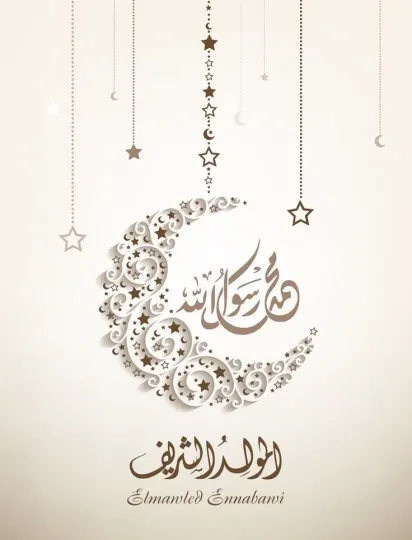 محمد رسول الله
المولد الشريف
Elmawled Ennabawi